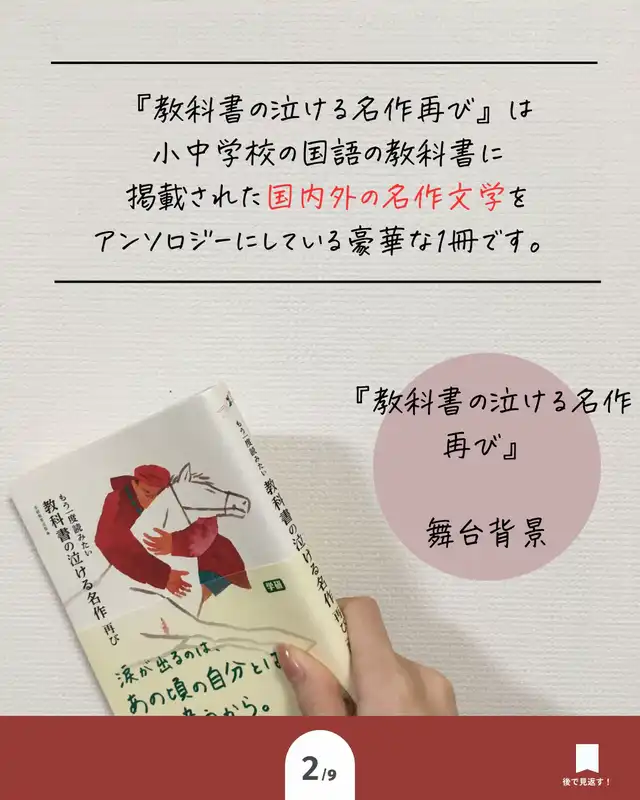 『教科書の泣ける名作再び』は
小中学校の国語の教科書に
掲載された国内外の名作文学を
アンソロジーにしている豪華な1冊です。
『教科書の泣ける名作
再び』
舞台背景
もう一度読みたい
教科書の泣ける名作 再び
もう一度読みたい
教科書の泣ける名作 再び
学研
涙が出るのは、
あの頃の自分とは
うから。
2/9
後で見返す！